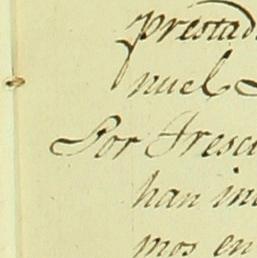 prestad
nuel
Por Tresci
han in
mos en